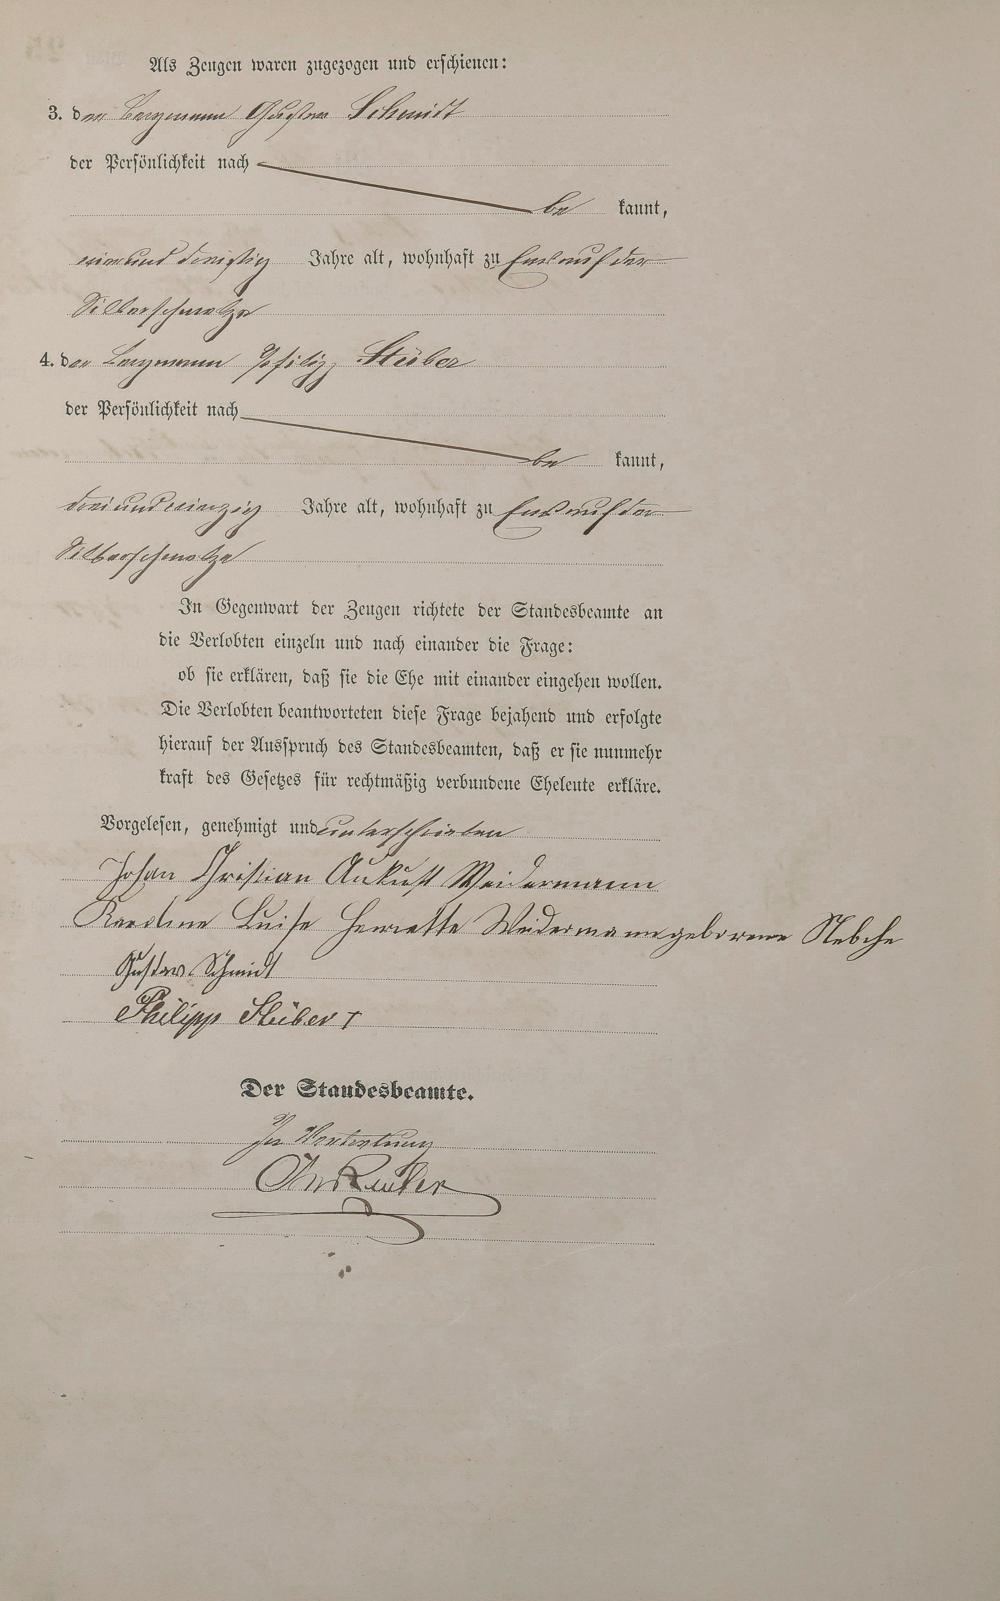 Als Zeugen waren zugezogen und erschienen:
3. der Bergmann Gustav Schmidt
der Persönlichkeit nach
be kannt,
ein und dreißig Jahre alt, wohnhaft zu Ems auf der
Silberschmelze
4. der Bergmann Philipp Stüber
der Persönlichkeit nach
be kannt,
drei und vierzig Jahre alt, wohnhaft zu Ems auf der
Silberschmelze
In Gegenwart der Zeugen richtete der Standesbeamte an
die Verlobten einzeln und nach einander die Frage:
ob sie erklären, daß sie die Ehe mit einander eingehen wollen.
Die Verlobten beantworteten diese Frage bejahend und erfolgte
hierauf der Ausspruch des Standesbeamten, daß er sie nunmehr
kraft des Gesetzes für rechtmäßig verbundene Eheleute erkläre.
Vorgelesen, genehmigt und unterschrieben
Johan Christian Aukust Weidermann
Karoline Luise Henrette Weidermann geborene
Gustav Schmidt
Philipp Stüber
Der Standesbeamte.
In Vertretung